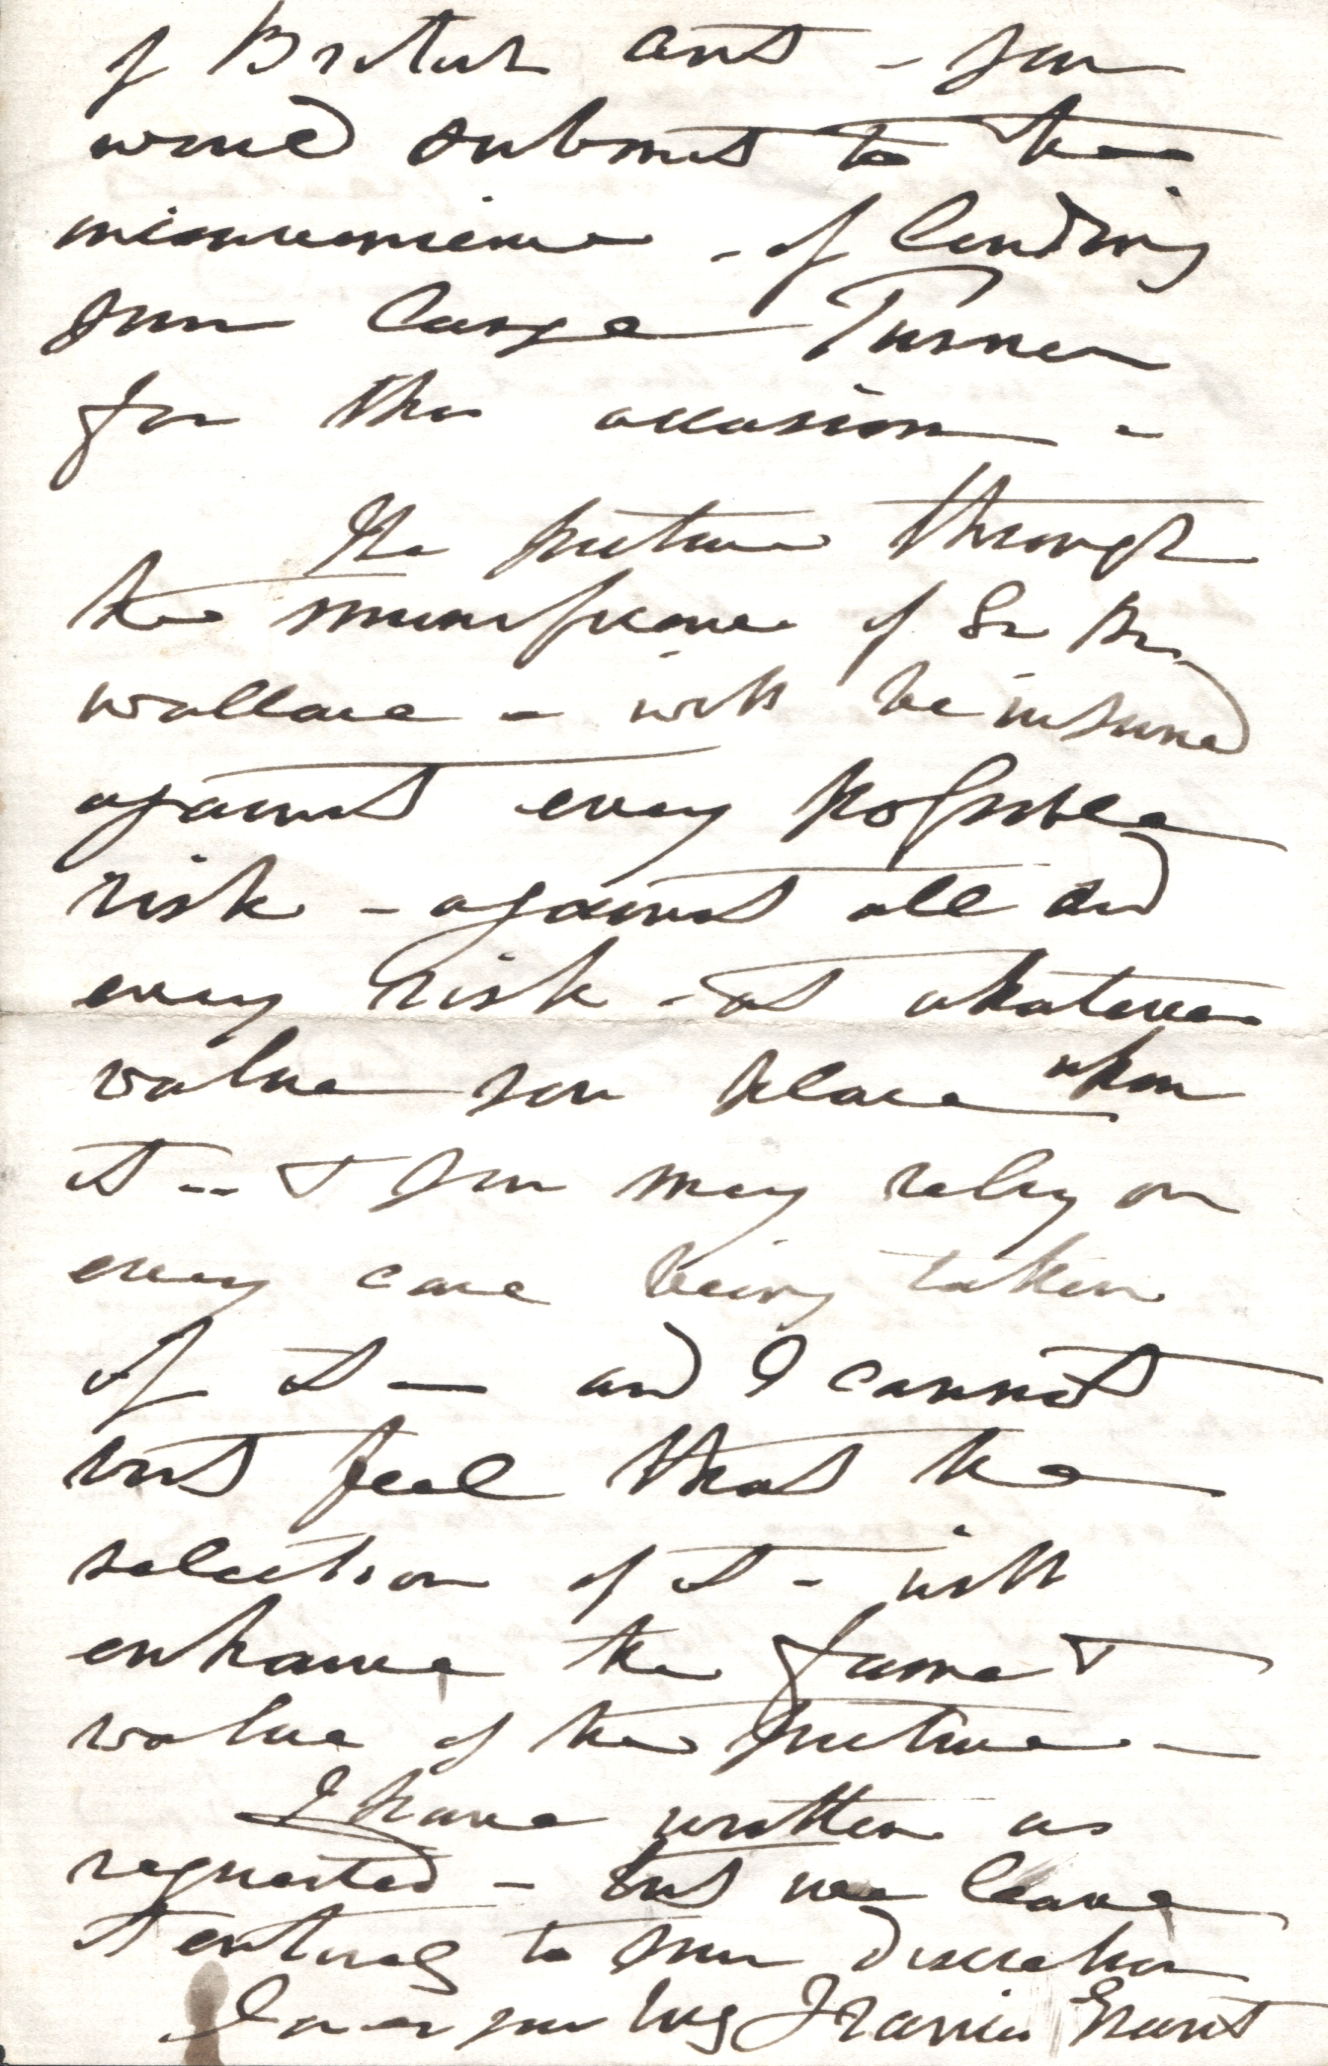 of British art - you
would submit to the
inconvenience - of lending
your large Turner
for this occasion -
The picture through
the munificence of Sir R.
Wallace - will be insured
against every possible
risk - against all and
every risk - at whatever
value you place upon
it -- & you may rely on
every care being taken
of it — and I cannot
but feel that the
selection of it - will
enhance the fame &
value of the picture -
I have written as
requested - but we leave
it entirely to your discretion
Francis Grant